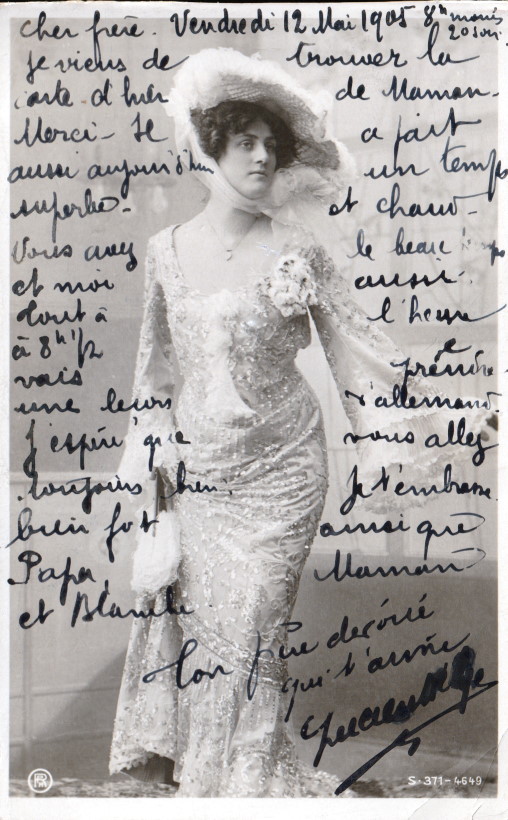 cher frère. Vendredi 12 Mai 1905 8h moins
20 soir.
Je viens de trouver la
carte d'hier de Maman.
Merci. Il a fait
aussi aujourd'hui un temps
superbe. et chaud.
Vous avez le beau temps
et moi aussi.
tout à l'heure
à 8h 1/2 je
vais prendre
une leçon d'allemand.
J'espère que vous allez
toujours bien. Je t'embrasse
bien fort ainsi que
Papa, Maman
et Blanche.
Ton frère
qui t'aime
S. 371-4649